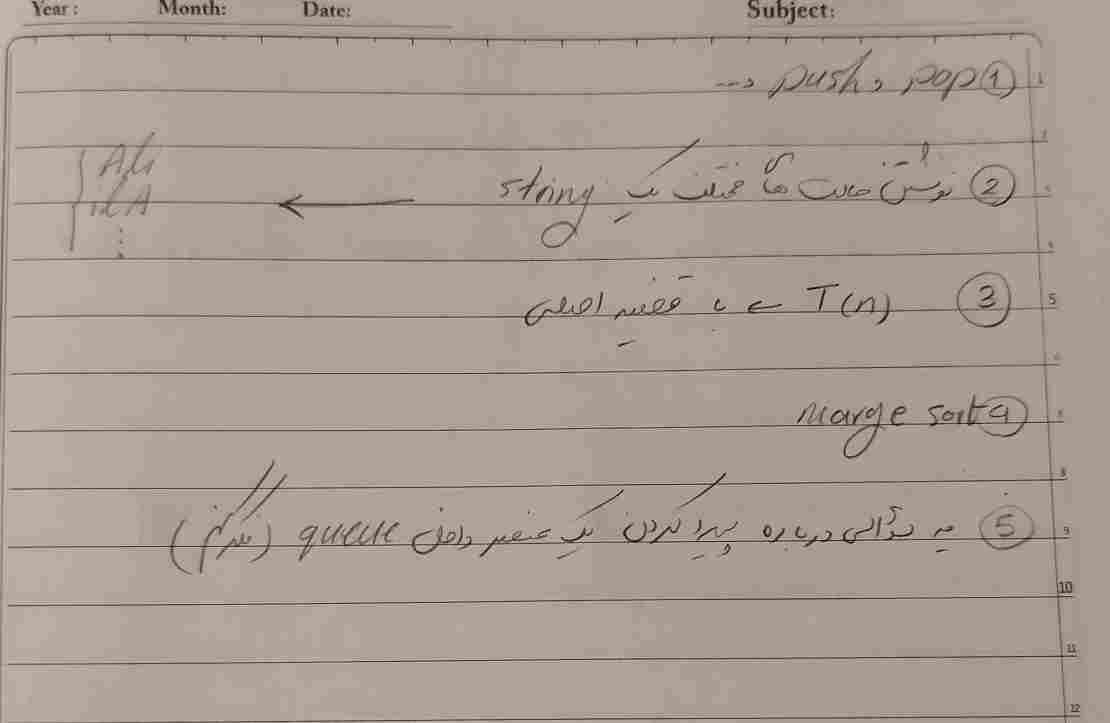 Year: Month: Date: Subject:
① pop و push ...
② نوشتن حالت های مختلف یک string ←
Ali
ilA
⋮
③ T(n) ← با قضیه اصلی
④ Marge sort
⑤ یه سؤالی درباره پیدا کردن یک عنصر داخل queue (فکر کنم)
1
5
8
9
10
11
12